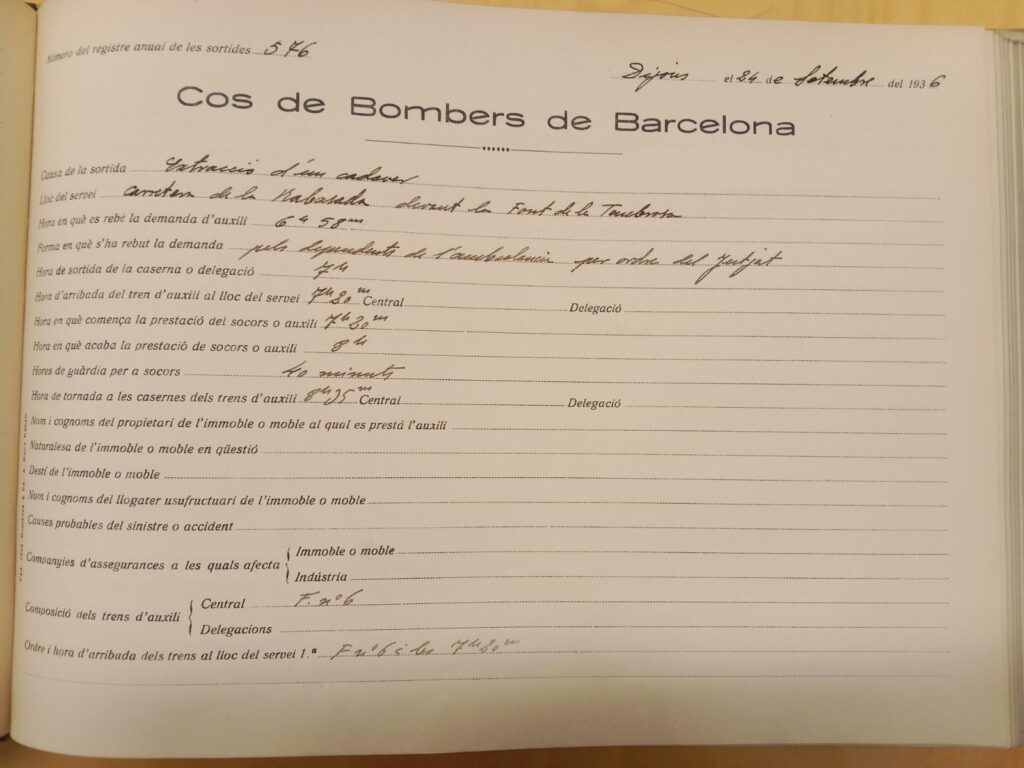 Número del registre anual de les sortides 576
Dijous el 24 de Setembre del 1936
Cos de Bombers de Barcelona
Causa de la sortida Extracció d'un cadaver
Lloc del servei Carretera de la Rabasada devant la Font de la Tenebrosa
Hora en què es rebé la demanda d'auxili 6h 58m
Forma en què s'ha rebut la demanda pels dependents de l'ambulancia per ordre del Jutjat
Hora de sortida de la caserna o delegació 7h
Hora d'arribada del tren d'auxili al lloc del servei 7h 20m Central Delegació
Hora en què comença la prestació del socors o auxili 7h 20m
Hora en què acaba la prestació de socors o auxili 8h
Hores de guàrdia per a socors 40 minuts
Hora de tornada a les casernes dels trens d'auxili Central Delegació
Nom i cognoms del propietari de l'immoble o moble al qual es prestà l'auxili
Naturalesa de l'immoble o moble en qüestió
Destí de l'immoble o moble
Nom i cognoms del llogater usufructuari de l'immoble o moble
Causes probables del sinistre o accident
Companyies d'assegurances a les quals afecta
Immoble o moble
Indústria
Composició dels trens d'auxili
Central F. nº 6
Delegacions
Ordre i hora d'arribada dels trens al lloc del servei 1.ª F nº 6 a les 7h 20m